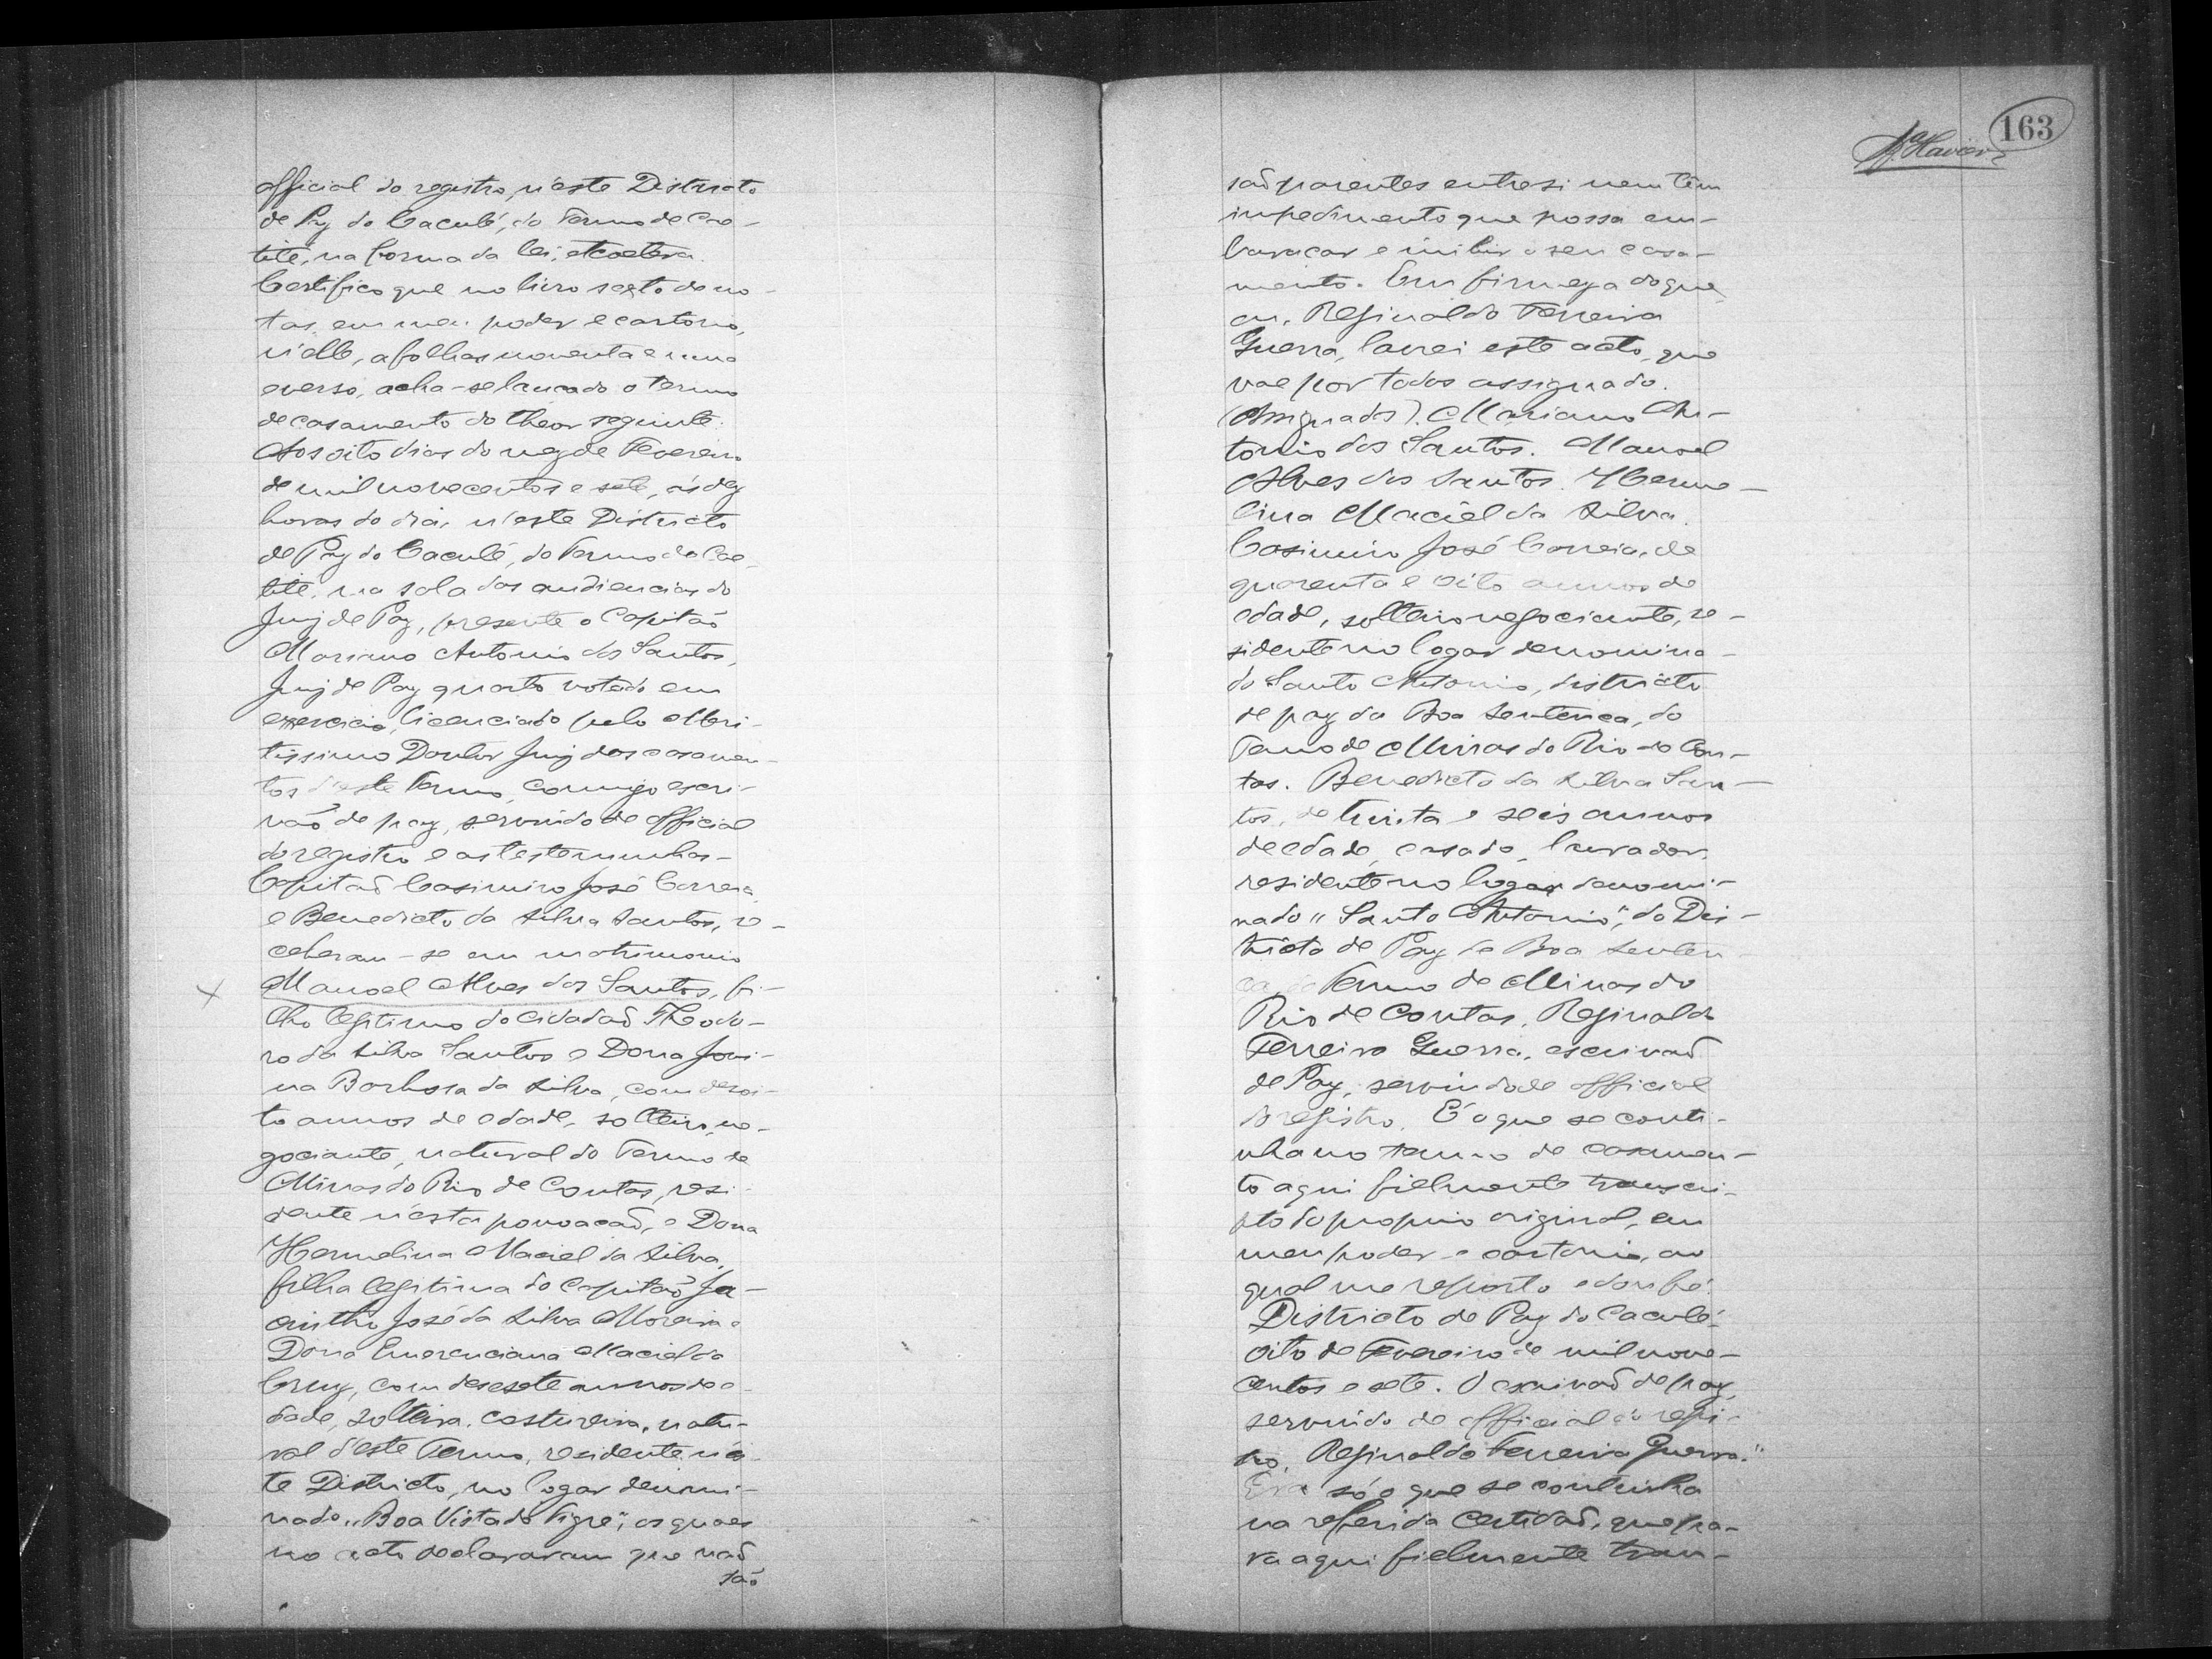 official do registro, n'este Districto
de Paz do Caculé, do Termo de Cae-
tité, na forma da lei, etcoetera.
Certifico que no livro sexto de no-
tas, em meu poder e cartorio,
n'elle, a folhas noventa e uma
e verso, acha-se lançado o termo
de casamento do theor seguinte:
Aos oito dias do mez de Fevereiro
de mil novecentos e sete, ás dez
horas do dia, n'este Districto
de Paz do Caculé, do Termo de Cae-
tité, na sala das audiencias do
Juiz de Paz, presente o Capitão
Mariano Antonio dos Santos,
Juiz de Paz quarto votado em
exercicio, licenciado pelo Meri-
tissimo Doutor Juiz dos casamen-
tos d'este Termo, comigo escri-
vão de paz, servindo de official
do registro e as testemunhas-
Capitão Casimiro José Correia,
e Benedicto da Silva Santos, re-
ceberam-se em matrimonio
Manoel Alves dos Santos, fi-
lho legitimo do cidadaõ Theodo-
ro da Silva Santos e Dona Jovi-
na Barbosa da Silva, com desoi-
to annos de edade, solteiro, ne-
gociante, natural do Termo de
Minas do Rio de Contas, resi-
dente n'esta povoacaõ, e Dona
Hermelina Maciel da Silva,
filha legitima do Capitaõ Ja-
cintho José da Silva Moreira e
Dona Emerenciana Maciel da
Cruz, com desesete annos de e-
dade, solteira, costureira, natu-
ral d'este Termo, residente n'es-
te Districto, no logar denomi-
nado "Boa Vista do Tigre"; os quaes
no acto declararam que naõ
saõ
163
saõ parentes entre si nem têm
impedimento que possa em-
baraçar e inibir o seu casa-
mento. Em firmeza do que,
eu, Reginaldo Ferreira
Guerra, lavrei este acto, que
vae por todos assignado.
(Assignados). Mariano An-
tonio dos Santos. Manoel
Alves dos Santos. Herme-
lina Maciel da Silva.
Casimiro José Correia, de
quarenta e oito annos de
edade, solteiro negociante, re-
sidente no logar denomina-
do Santo Antonio, districto
de paz da Boa Sentença, do
Termo de Minas do Rio de Con-
tas. Benedicto da Silva San-
tos, de trinta e seis annos
de edade, casado, lavrador,
residente no logar denomi-
nado "Santo Antonio", do Dis-
tricto de Paz da Boa Senten-
ça, do Termo de Minas do
Rio de Contas. Reginaldo
Ferreira Guerra, escrivaõ
de Paz, servindo de official
do registro. É o que se conti-
nha no termo de casamen-
to aqui fielmente transcri-
pto do proprio original, em
meu poder e cartorio, ao
qual me reporto e dou fé.
Districto de Paz do Caculé,
oito de Fevereiro de mil nove-
centos e sete. O escrivaõ de paz,
servindo de official do regis-
tro, Reginaldo Ferreira Guerra."
Era só o que se continha
na referida certidaõ, que pa-
ra aqui fielmente tran-